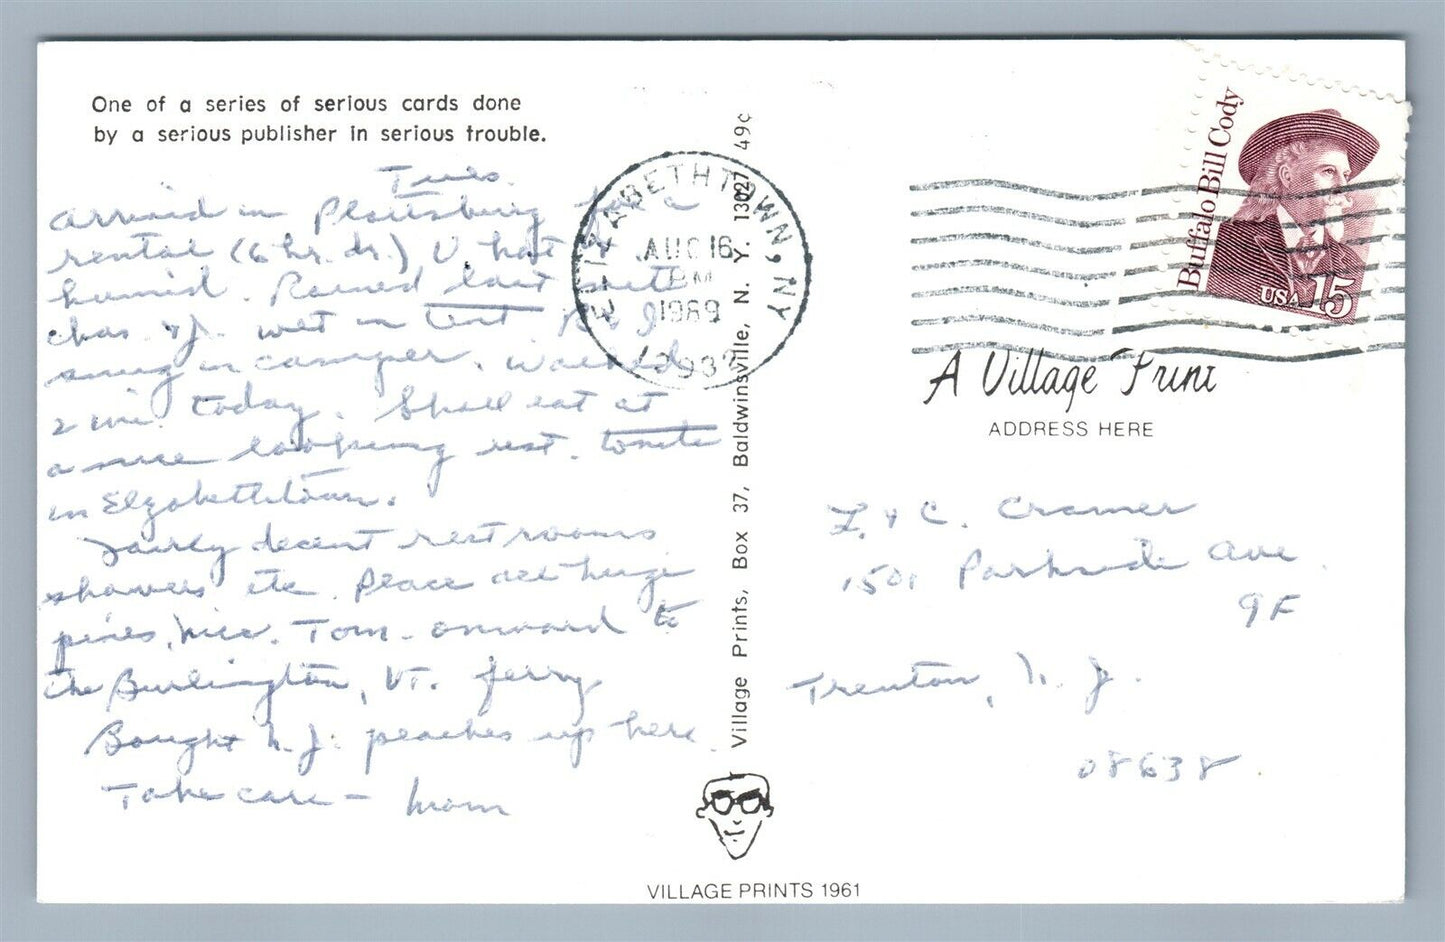 One of a series of serious cards done
by a serious publisher in serious trouble.
Tues.
arrived in Plattsburg for a
rental (6 hr. dr.) V hot &
humid. Rained last nite
chas. & J. wet in tent B & I
snug in camper. Walked
2 mi. today. Shall eat at
a nice looking rest. tonite
in Elzabethtown.
Fairly decent restrooms
showers etc. Place all huge
pines, nice. Tom. onward to
the Burlington, VT. ferry
Bought N.J. peaches up here.
Take care – Mom
ELIZABETHTOWN, NY
AUG 16
PM
1989
12932
Village Prints, Box 37, Baldwinsville, N. Y. 13027 49¢
Buffalo Bill Cody
USA 15
A Village Print
ADDRESS HERE
L. & C. Cramer
1501 Parkside Ave.
9F
Trenton, N. J.
08638
VILLAGE PRINTS 1961